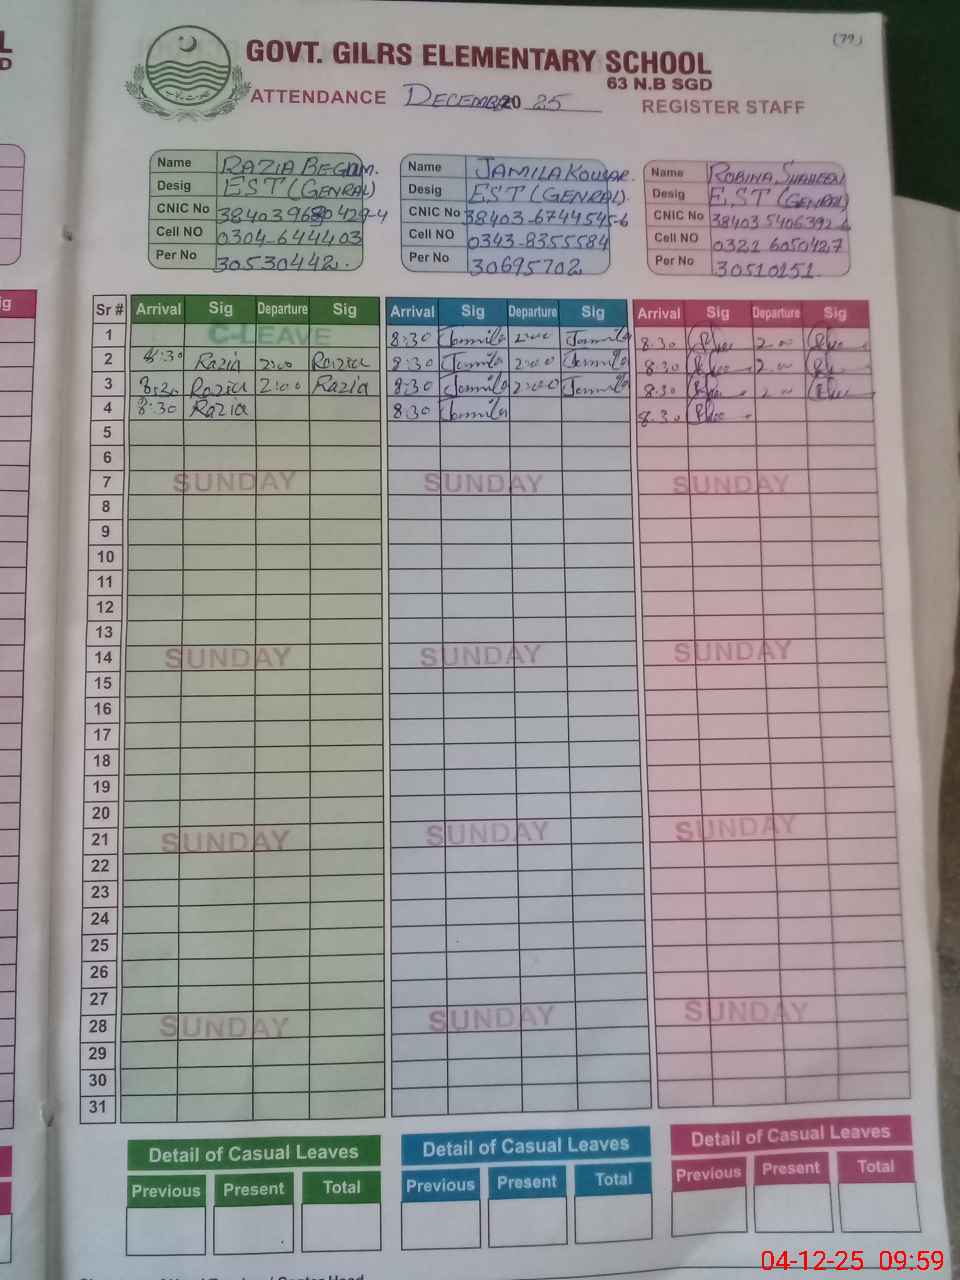 (79)
GOVT. GILRS ELEMENTARY SCHOOL
63 N.B SGD
ATTENDANCE DECEMBER 20 25 REGISTER STAFF
Name RAZIA BEGUM. Name JAMILA KOUSAR. Name ROBINA SHAHEEN
Desig EST (GENRAL) Desig EST (GENRAL) Desig EST (GENRAL)
CNIC No CNIC No 38403-6744545-6 CNIC No 38403 5406392-6
Cell NO 0304-644403 Cell NO 0343-8355584 Cell NO 0321 6050427
Per No 30530442. Per No 30695702 Per No 30510151.
Sr # Arrival Sig Departure Sig Arrival Sig Departure Sig Arrival Sig Departure Sig
1 C-LEAVE 8:30 Jamila 2:00 Jamila 8.30 2.00
2 8:30 Razia 2:00 Razia 8:30 Jamila 2:00 Jamila 8.30 2.00
3 8:30 Razia 2:00 Razia 8:30 Jamila 2:00 Jamila 8.30 2.00
4 8:30 Razia 8:30 Jamila 8.30
5
6
7 SUNDAY SUNDAY SUNDAY
8
9
10
11
12
13
14 SUNDAY SUNDAY SUNDAY
15
16
17
18
19
20
21 SUNDAY SUNDAY SUNDAY
22
23
24
25
26
27
28 SUNDAY SUNDAY SUNDAY
29
30
31
Detail of Casual Leaves Detail of Casual Leaves Detail of Casual Leaves
Previous Present Total Previous Present Total Previous Present Total
04-12-25 09:59